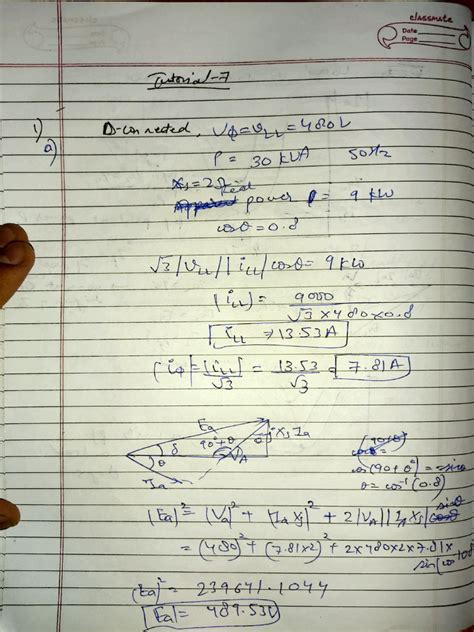 classmate
Date
Page
Tutorial-7
1)
a) Δ-connected, Vφ = VLL = 480V
P = 30 kVA 50Hz
Xs = 2Ω
real
power P = 9 kW
cosθ = 0.8
√3 |VLL| |iLL| cosθ = 9 kW
|iLL| = 9000 / √3 × 480 × 0.8
iLL ⇒ 13.53A
|iφ| = |iLL| / √3 = 13.53 / √3 = 7.81A
Ea
δ
θ
90+θ
θ
VA
jXsIa
Ia
cos(90+θ) = -sinθ
θ = cos⁻¹(0.8)
|Ea|² = |VA|² + |Ia Xs|² + 2|VA||Ia Xs| sinθ
= (480)² + (7.81×2)² + 2×480×2×7.81×
sin(cos⁻¹0.8)
|Ea|² = 239641.1044
|Ea| = 489.53V